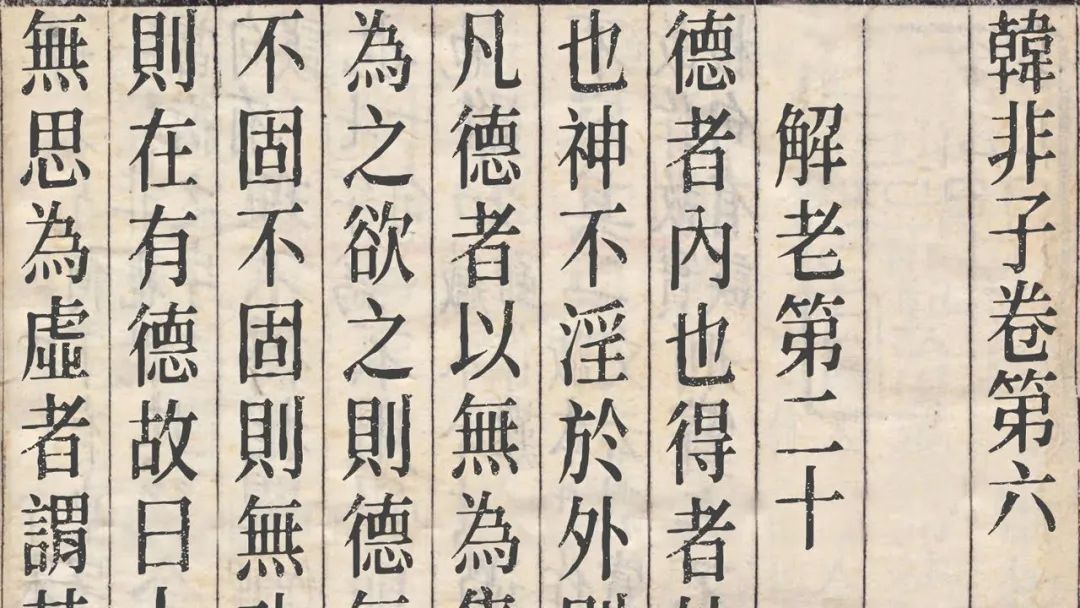 韓非子卷第六
解老第二十
德者內也得者
也神不淫於外則
凡德者以無為集
為之欲之則德無
不固不固則無功
則在有德故曰上
無思為虛者謂其